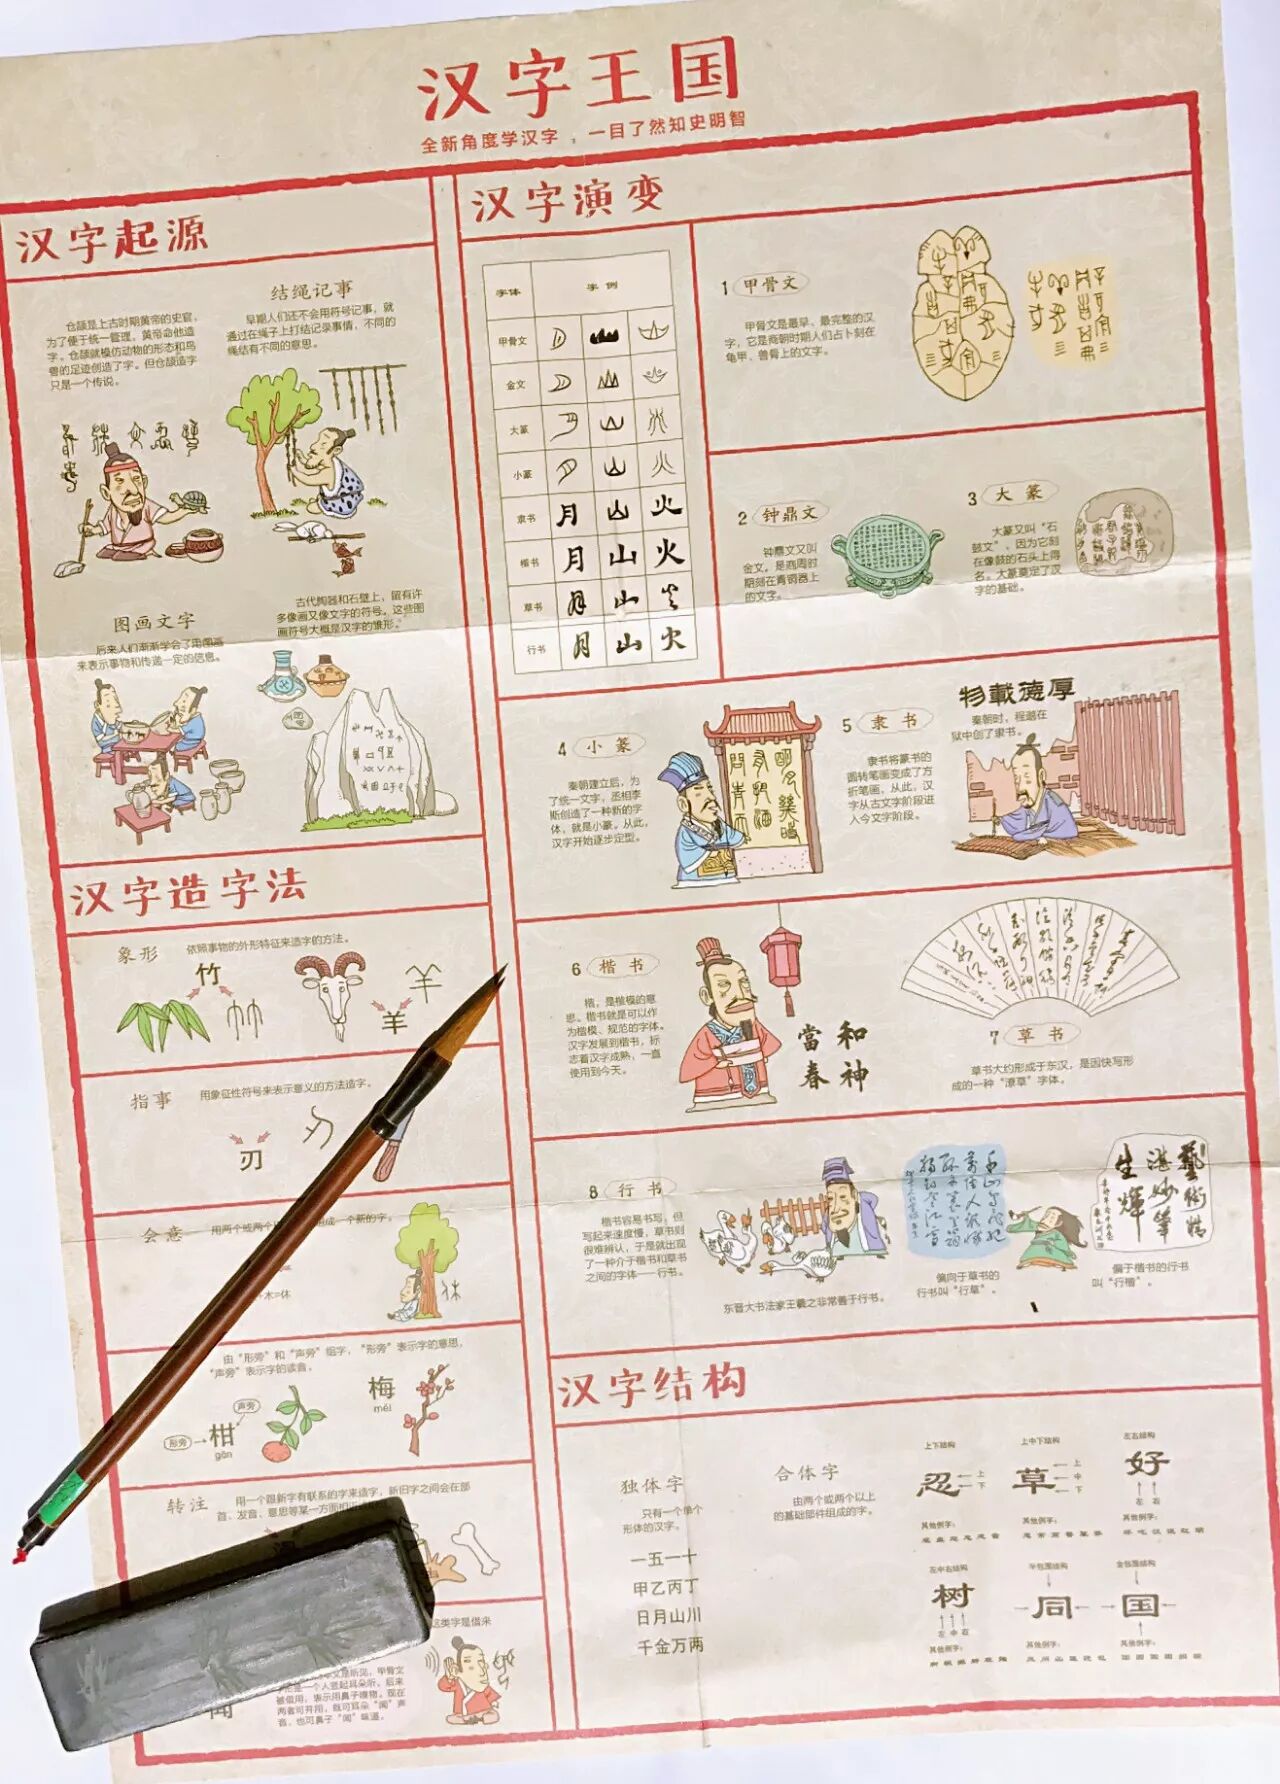 汉字王国
全新角度学汉字，一目了然知史明智
汉字起源
仓颉是上古时期黄帝的史官，
为了便于统一管理，黄帝命他造
字。仓颉就模仿动物的形态和鸟
兽的足迹创造了字。但仓颉造字
只是一个传说。
结绳记事
早期人们还不会用符号记事，就
通过在绳子上打结记录事情，不同的
绳结有不同的意思。
图画文字
后来人们渐渐学会了用图画
来表示事物和传递一定的信息。
古代陶器和石壁上，留有许
多像画又像文字的符号。这些图
画符号大概是汉字的雏形。
汉字造字法
象形
依照事物的外形特征来造字的方法。
竹
羊
指事
用象征性符号来表示意义的方法造字。
刃
会意
用两个或两个
一个新的字。
木=休
由“形旁”和“声旁”组字，“形旁”表示字的意思，
“声旁”表示字的读音。
声旁
形旁
柑
gān
梅
méi
转注
用一个跟新字有联系的字来造字，新旧字之间会在部
首、发音、意思等某一方面
这类字是借来
甲骨文
是一个人竖起耳朵听，后来
被借用，表示用鼻子嗅物。现在
两者可并用，既可耳朵“闻”声
音，也可鼻子“闻”味道。
闻
汉字演变
字体 字例
甲骨文
金文
大篆
小篆
隶书 月 山 火
楷书 月 山 火
草书 月 山 火
行书 月 山 火
1 甲骨文
甲骨文是最早、最完整的汉
字，它是商朝时期人们占卜刻在
龟甲、兽骨上的文字。
2 钟鼎文
钟鼎文又叫
金文，是商周时
期刻在青铜器上
的文字。
3 大篆
大篆又叫“石
鼓文”，因为它刻
在像鼓的石头上得
名。大篆奠定了汉
字的基础。
4 小篆
秦朝建立后，为
了统一文字，丞相李
斯创造了一种新的字
体，就是小篆。从此，
汉字开始逐步定型。
5 隶书
隶书将篆书的
圆转笔画变成了方
折笔画，从此，汉
字从古文字阶段进
入今文字阶段。
物載德厚
秦朝时，程邈在
狱中创了隶书。
6 楷书
楷，是楷模的意
思。楷书就是可以作
为楷模、规范的字体。
汉字发展到楷书，标
志着汉字成熟，一直
使用到今天。
當和
春神
7 草书
草书大约形成于东汉，是因快写形
成的一种“潦草”字体。
8 行书
楷书容易书写，但
写起来速度慢，草书则
很难辨认，于是就出现
了一种介于楷书和草书
之间的字体——行书。
东晋大书法家王羲之非常善于行书。
偏向于草书的
行书叫“行草”。
藝術精
湛妙筆
生輝
偏于楷书的行书
叫“行楷”。
汉字结构
独体字
只有一个单个
形体的汉字。
一五一十
甲乙丙丁
日月山川
千金万两
合体字
由两个或两个以上
的基础部件组成的字。
上下结构
忍
上
下
其他例字：
上中下结构
草
上
中
下
其他例字：
左右结构
好
左 右
其他例字：
左中右结构
树
左 中 右
其他例字：
半包围结构
同
其他例字：
全包围结构
国
其他例字：